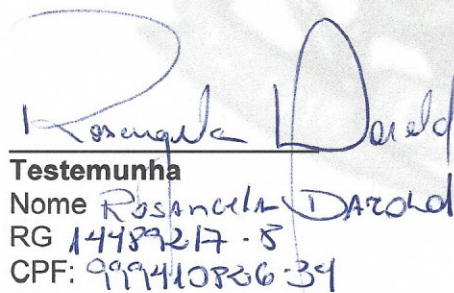 Rosangela Darold
Testemunha
Nome Rosangela Darold
RG 14489217-8
CPF: 999410826-34